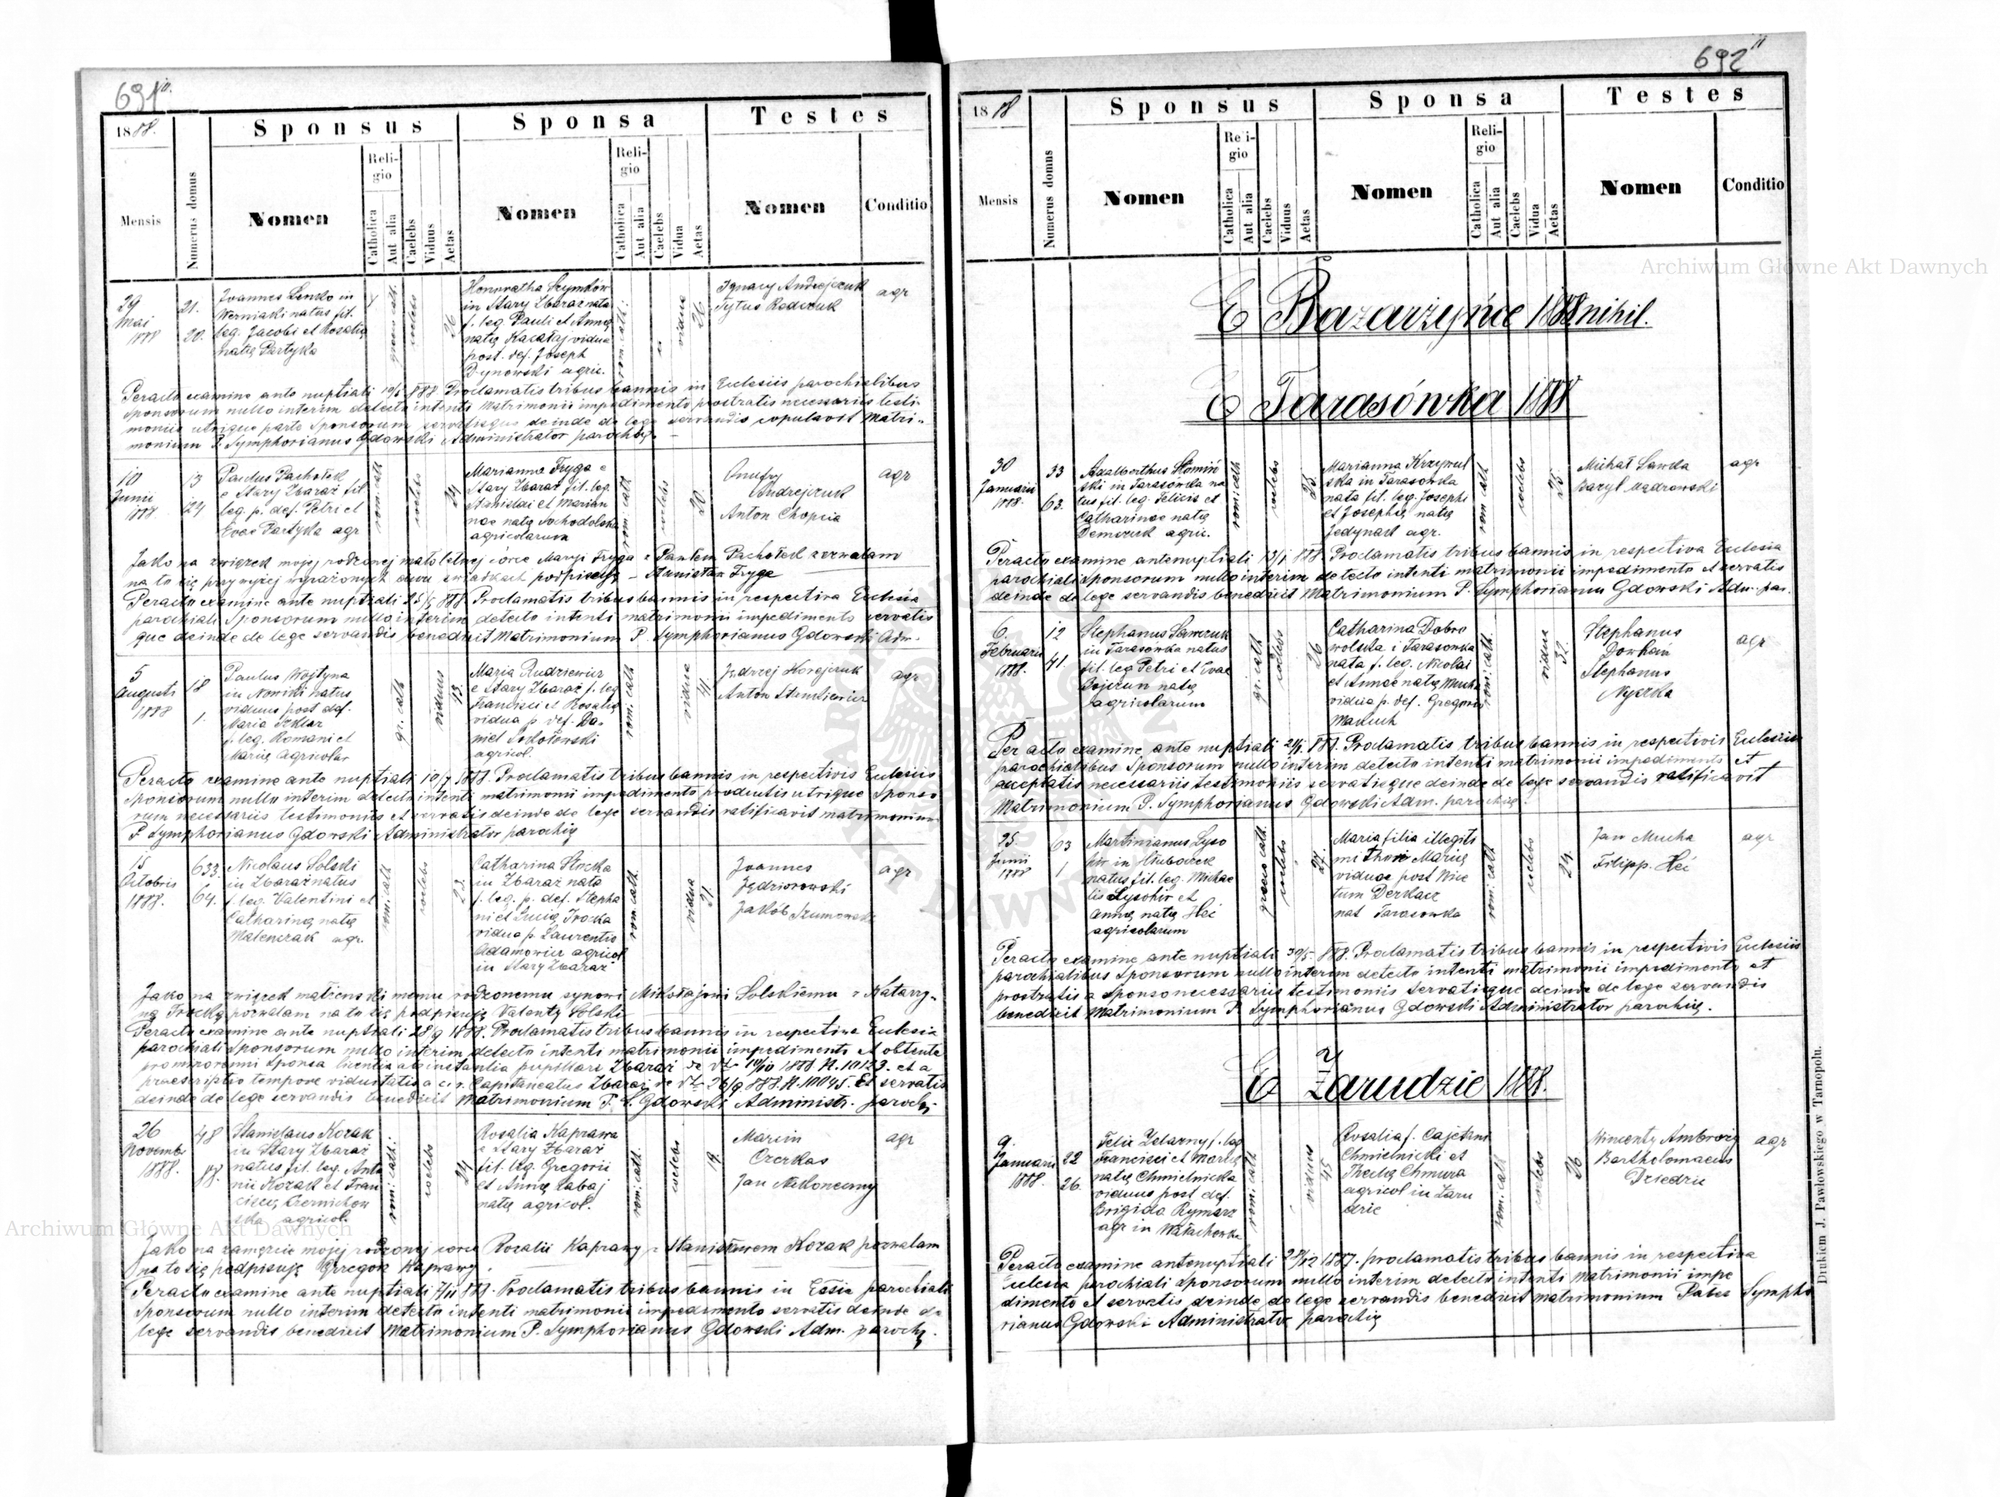 691
1888.
Mensis
Numerus domus
Sponsus
Nomen
Religio
Catholica
Aut alia
Caelebs
Viduus
Aetas
Sponsa
Nomen
Religio
Catholica
Aut alia
Caelebs
Vidua
Aetas
Testes
Nomen
Conditio
29
Mai
1888
21.
20.
Joannes in
natus fil.
leg. Jacobi et Rosalię
natię Partyka
caelebs
26
Honoratha Szymków
in Stary Zbaraż nata
f. leg. Pauli et Annę
natię vidua
post. def. Joseph
Dynowski agric.
rom. cath.
vidua
26
Ignacy Andrejczuk
Tytus
agr
Peracto examine ante nuptiali 19/5 888 Proclamatis tribus bannis in Eclesiis parochialibus
Sponsorum nullo interim detecto intenti Matrimonii impedimento prostratis necessariis testi
moniis utriqué parte Sponsorum servatisque deinde de lege servandis copulavit Matri-
monium P. Symphorianus Gdowski Administrator parochię
10
Junii
1888
13
124
Paulus Pachołek
e Stary Zbaraż fil
leg. p. def. Petri et
Evae Partyka agr
rom: cath
caelebs
24
Marianna Fryga e
Stary Zbaraż fil. leg.
Stanislai et Marian
nae natię Sochodolska
agricolarum
rom: cath
caelebs
20.
Onufry
Andrejczuk
Anton Chopcia
agr
Jako na związek mojej rodzonej małoletniej córce Maryi Fryga z Pawłem Pachołek zezwalam
na to się przy wyżej wyrażonych dwu świadkach podpisuję - Stanisław Fryga
Peracto examine ante nuptiali 25/5 888 Proclamatis tribus bannis in respectiva Eclesia
parochiali Sponsorum nullo interim detecto intenti matrimonii impedimento servatis
que deinde de lege servandis benedixit Matrimonium P. Symphorianus Gdowski Adm.
5
Augusti
1888
18
1.
Paulus Wojtyna
in natus
viduus post def.
Maria Szklar
f. leg. Romani et
Marię agricolar
gr. cath
viduus
Maria Rudziewicz
e Stary Zbaraż f. leg
Francisci et Rosalię
vidua p. def. Da-
niel Sokołowski
agricol.
rom. cath
vidua
41.
Jędrzej Horejczuk
Anton Stankiewicz
agr
Peracto examine ante nuptiali 10/7 1888. Proclamatis tribus bannis in respectivis Eclesiis
Sponsorum nullo interim detecto intenti matrimonii impedimento productis utrique Sponso
rum necessariis testimoniis et servatis deinde de lege servandis ratificavit matrimonium
P. Symphorianus Gdowski Administrator parochię
15
Octobris
1888.
633.
64.
Nicolaus Solski
in Zbaraż natus
f. leg. Valentini et
Catharinę natię
Matenczak agr.
rom: cath
caelebs
22.
Catharina Stocka
in Zbaraż nata
f. leg. p. def. Stepha
ni et Trocka
vidua p. Laurentio
Adamowicz agricol
in Stary Zbaraż
rom: cath.
vidua
21.
Joannes
Jędziorowski
Jakób Szumowski
agr
Jako na związek małżenski memu rodzonemu synowi Mikołajowi Solskiemu z Katarzy-
ną Trocką pozwalam na to się podpisuję Valenty Solski
Peracto examine ante nuptiali 28/9 1888. Proclamatis tribus bannis in respectiva Eclesia
parochiali Sponsorum nullo interim detecto intenti matrimonii impedimento et obtenta
pro minorenni Sponsa licentia ab instantia pupillari Zbaraż de dto 10/10 1888 N. 10123. et a
praescripto tempore viduitatis a c. r. Capitaneatus Zbaraż de dto 26/9 888. N. 10045. Et servatis
deinde de lege servandis benedixit Matrimonium P. S. Gdowski Administr. parochę
26
Novembr
1888.
48
88.
Stanislaus Kozak
in Stary Zbaraż
natus fil. leg. Anto
nii Kozak et Fran
ciscę Czernichow
ska agricol.
rom: cath:
caelebs
24
Rosalia Kaprawa
e Stary Zbaraż
fil. leg. Gregorii
et Annę Zabaj
natię agricol.
rom: cath.
caelebs
19.
Marcin
Czerkas
Jan Niekoneczny
agr
Jako na zamęźcie mojej rodzonej córce Rosalii Kaprawy z Stanisławem Kozak pozwalam
na to się podpisuję Grzegorz Kaprawy.
Peracto examine ante nuptiali 7/11 888. Proclamatis tribus bannis in Ecssia parochiali
Sponsorum nullo interim detecto intenti matrimonii impedimento servatis deinde de
lege servandis benedixit Matrimonium P. Symphorianus Gdowski Adm. parochę.
692
1888
Mensis
Numerus domus
Sponsus
Nomen
Religio
Catholica
Aut alia
Caelebs
Viduus
Aetas
Sponsa
Nomen
Religio
Catholica
Aut alia
Caelebs
Vidua
Aetas
Testes
Nomen
Conditio
E Bazarzyńce 1888 nihil.
E Tarasówka 1888
30
Januarii
1888.
33
63.
Adalberthus Słomiń
ski in Tarasówka na
tus fil. leg. Felicis et
Catharinae natię
Demczuk agric.
rom: cath
caelebs
25.
Marianna Krzywul
ska in Tarasówka
nata fil. leg. Josephi
et Josephię natię
Jedynak agr.
rom: cath
caelebs
25.
Michał Sawka
Bazyl Mądrowski
agr
Peracto examine antenuptiali 13/1 888. Proclamatis tribus bannis in respectiva Eclesia
parochiali Sponsorum nullo interim detecto intenti matrimonii impedimento et servatis
deinde de lege servandis benedixit Matrimonium P. Symphorianus Gdowski Adm. par.
6.
Februarii
1888.
12
41.
Stephanus Sawczuk
in Tarasówka natus
fil. leg Petri et Evae
Bojczun natię
agricolarum
gr. cath
caelebs
26
Catharina Dobro
wolska i Tarasowka
nata f. leg. Nicolai
et Annae natię Mucha
vidua p. def. Gregorio
Maduch
rom: cath:
vidua
32.
Stephanus
Dowhań
Stephanus
Nyczka
agr
Peracto examine ante nuptiali 24/1 888. Proclamatis tribus bannis in respectivis Eclesiis
parochialibus Sponsorum nullo interim detecto intenti matrimonii impedimento et
acceptatis necessariis testimoniis servatisque deinde de lege servandis ratificavit
Matrimonium P. Symphorianus Gdowski Adm. parochię.
25.
Junii
1888
63
1
Martinianus Łyso
hir in Hluboczek
natus fil. leg. Michae
lis Łysohir et
Annę natię Hei
agricolarum
graeco cath.
caelebs
27.
Maria filia illegiti
mi thori Marię
viduae post Nice
tum Derkacz
nat Tarasowka
rom: cath
caelebs
24.
Jan Mucha
Filipp. Hei
agr
Peracto examine ante nuptiali 30/5 888. Proclamatis tribus bannis in respectivis Eclesiis
parochialibus Sponsorum nullo interim detecto intenti matrimonii impedimento et
prostratis a Sponso necessariis testimoniis servatisque deinde de lege servandis
benedixit Matrimonium P. Symphorianus Gdowski Administrator parochię.
E Zarudzie 1888.
9.
Januarii
1888.
22
26.
Felix Zelazny f. leg
Francisci et Marię
natię Chmielnicka
viduus post def.
Brigida Rymarz
agr in Wałachowka
rom: cath
viduus
45
Rosalia f. Cajetani
Chmielnicki et
Theclę Chmura
agricol in Zaru
dzie
rom: cath
caelebs
26
Wincenty Ambroży
Bartholomaeus
Dziedzic
agr
Peracto examine antenuptiali 27/12 1887. proclamatis tribus bannis in respectiva
Eclesia parochiali Sponsorum nullo interim detecto intenti Matrimonii impe
dimento et servatis deinde de lege servandis benedixit Matrimonium Pater Sympho
rianus Gdowski Administrator parochię
Drukiem J. Pawłowskiego w Tarnopolu.
Archiwum Główne Akt Dawnych
Archiwum Główne Akt Dawnych